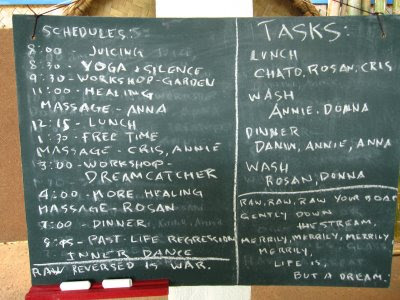 SCHEDULES:
8:00 - JUICING
8:30 - YOGA + SILENCE
9:30 - WORKSHOP - GARDEN
11:00 - HEALING
MASSAGE - ANNA
12:15 - LUNCH
1:30 - FREE TIME
MASSAGE - CRIS, ANNIE
3:00 - WORKSHOP -
DREAMCATCHER
4:00 - MORE HEALING
MASSAGE - ROSAN
7:00 - DINNER
8:45 - PAST LIFE REGRESSION
INNER DANCE
RAW REVERSED IS WAR.
TASKS:
LUNCH
CHATO, ROSAN, CRIS
WASH
ANNIE, DONNA
DINNER
DANIW, ANNIE, ANNA
WASH
ROSAN, DONNA
RAW, RAW, RAW YOUR BOAT
GENTLY DOWN
THE STREAM,
MERRILY, MERRILY, MERRILY
MERRILY,
LIFE IS,
BUT A DREAM.